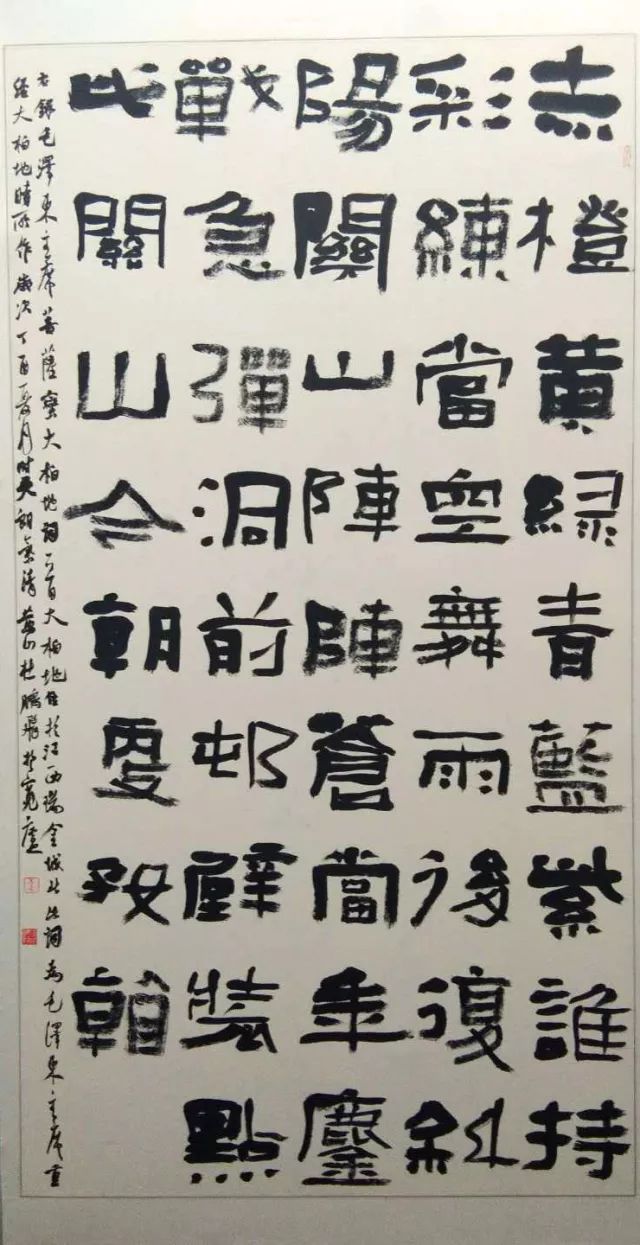 赤橙黃綠青藍紫誰持
彩練當空舞雨後復斜
陽關山陣陣蒼當年鏖
戰急彈洞前邨壁裝點
此關山今朝更好看
右錄毛澤東主席菩薩蠻大柏地詞一首大柏地位於江西瑞金城北此詞為毛澤東主席重
經大柏地時所作歲次丁酉夏月時天朗氣清黃山杜鵬飛於寬廬